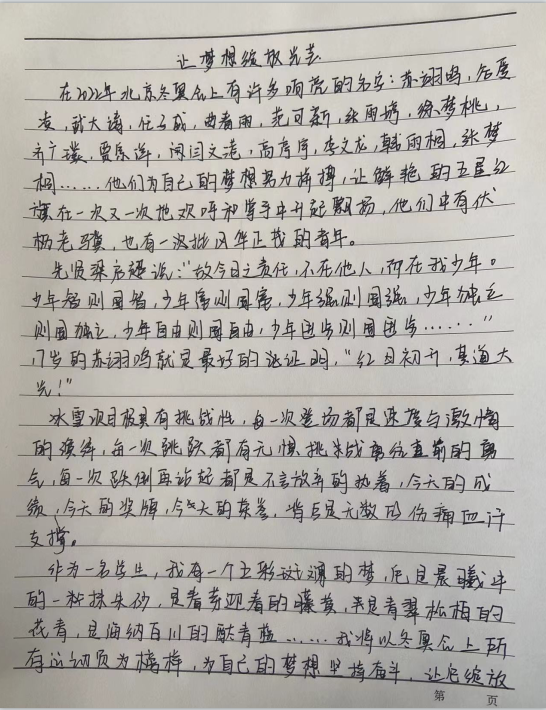 让梦想绽放光芒
在2022年北京冬奥会上有许多响亮的名字:苏翊鸣,谷爱
凌,武大靖,任子威,曲春雨,范可新,张雨婷,徐梦桃,
齐广璞,贾宗洋,闫文港,高亭宇,李文龙,韩雨桐,张梦
桐……他们为自己的梦想努力拼搏,让鲜艳的五星红
旗在一次又一次地欢呼和掌声中升起飘扬,他们中有伏
枥老骥,也有一波批风华正茂的青年。
先贤梁启超说:“故今日之责任,不在他人,而在我少年。
少年智则国智,少年富则国富,少年强则国强,少年独立
则国独立,少年自由则国自由,少年进步则国进步……”
17岁的苏翊鸣就是最好的证明,“红日初升,其道大
光!”
冰雪项目极具有挑战性,每一次登场都是速度与激情
的演绎,每一次跳跃都有无惧挑战勇往直前的勇
气,每一次跌倒再站起都是不言放弃的执着,今天的成
绩,今天的奖牌,今天的荣誉,背后是无数的伤痛血汗
支撑。
作为一名学生,我有一个五彩斑斓的梦,它是晨曦中
的一抹朱砂,是春芽迎春的藤黄,是青翠松柏的
花青,是海纳百川的酞青蓝……我将以冬奥会上所
有运动员为榜样,为自己的梦想坚持奋斗,让它绽放
第 页